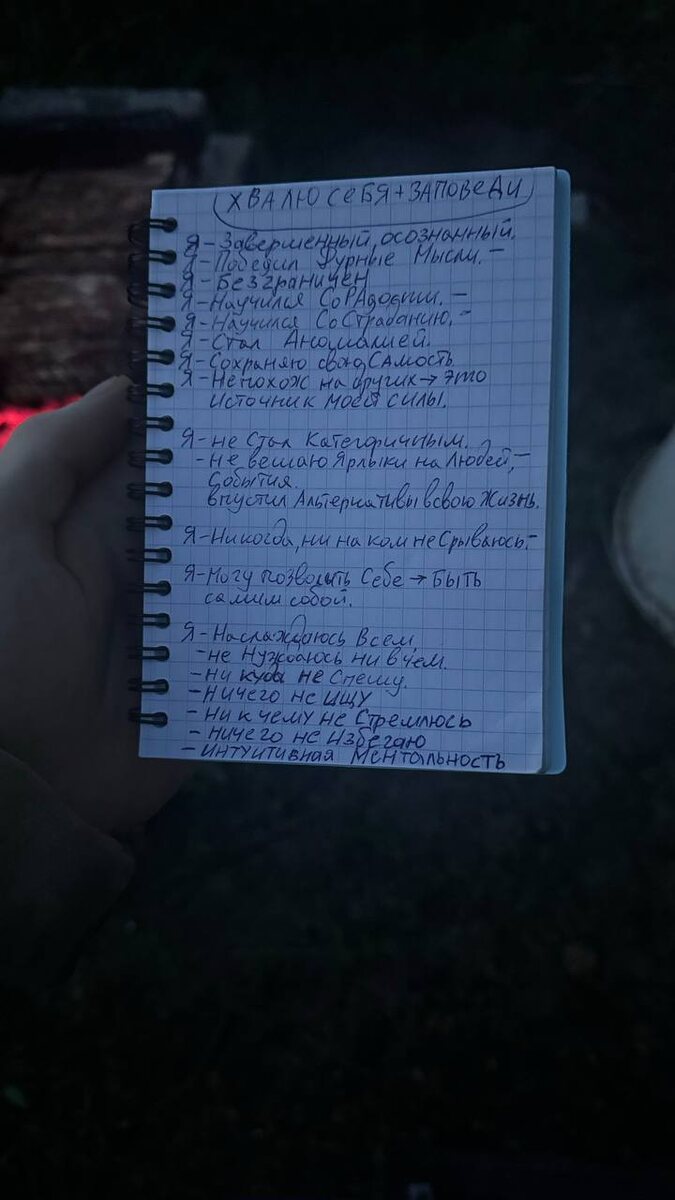 ХВАЛЮ СЕБЯ + ЗАПОВЕДИ
Я - Завершенный, осознанный.
Я - Победил Дурные Мысли. -
Я - Безграничен
Я - Научился СоРАдости. -
Я - Научился СоСтраданию. -
Я - Стал Аномалией.
Я - Сохраняю свою САмость
Я - Непохож на других → ЭТО
источник моей силы.
Я - не Стал Категоричным.
- не вешаю Ярлыки на Людей, -
События.
впустил Альтернативы в свою Жизнь.
Я - Никогда, ни на ком не Срываюсь. -
Я - Могу позволить Себе → БЫТЬ
самим собой.
Я - Наслаждаюсь Всем
- не Нуждаюсь ни в чем.
- ни куда не Спешу.
- Ничего не ИЩУ
- ни к чему не Стремлюсь
- ничего не избегаю
- интуитивная Ментальность